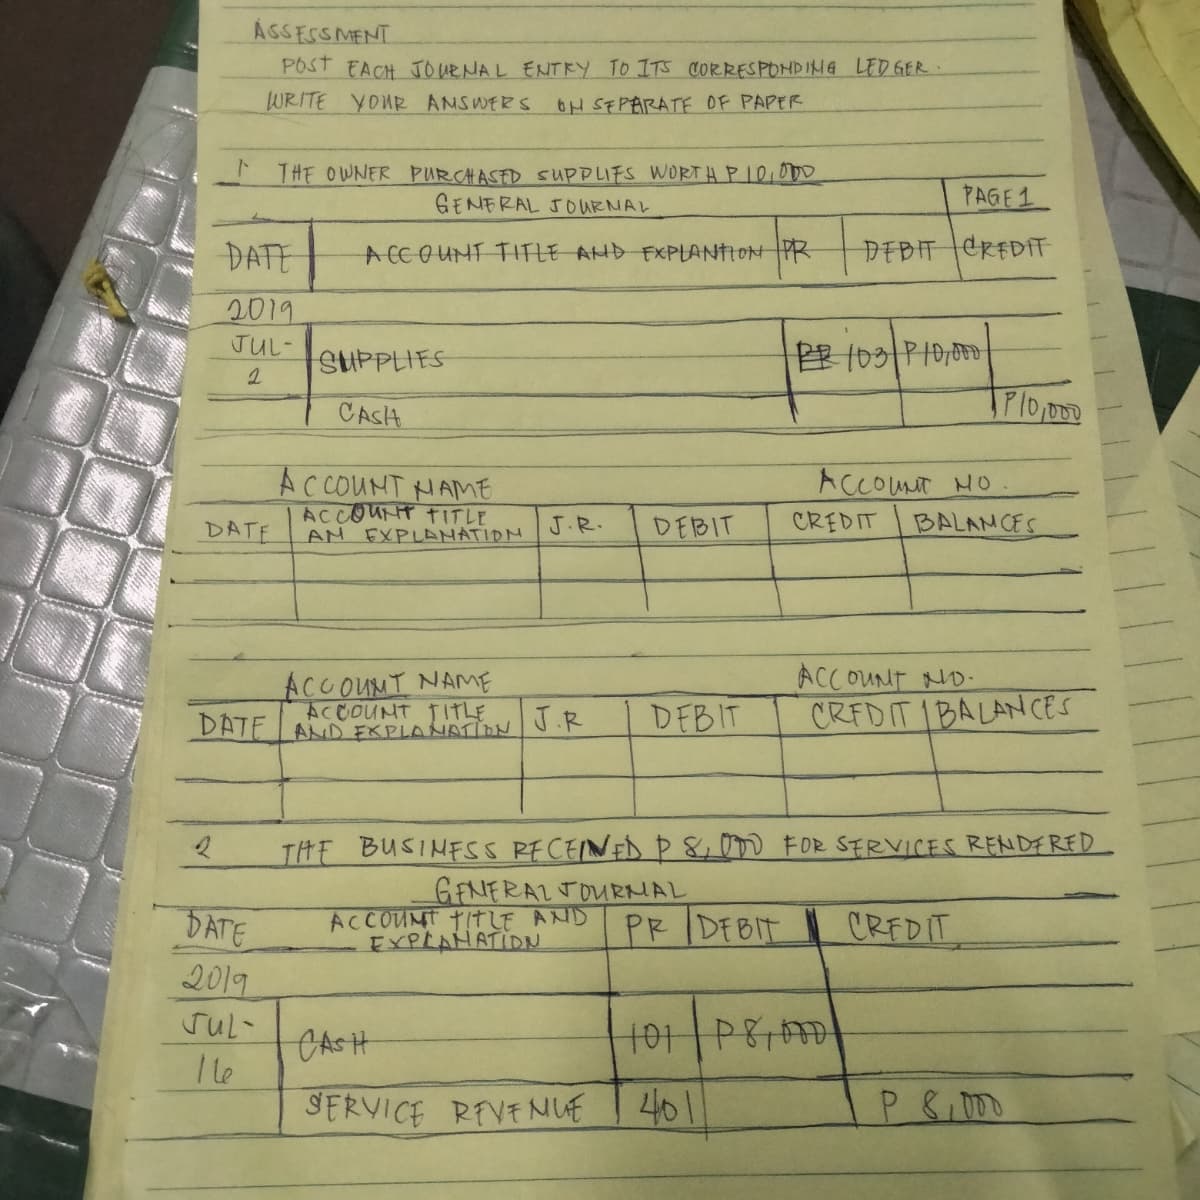 ASSESSMENT
POST EACH JOURNAL ENTRY TO ITS CORRESPONDING LEDGER.
WRITE YOUR ANSWERS ON SEPARATE OF PAPER
1. THE OWNER PURCHASED SUPPLIES WORTH P10,000
GENERAL JOURNAL PAGE 1
DATE ACCOUNT TITLE AND EXPLANTION PR DEBIT CREDIT
2019
JUL-2 SUPPLIES 103 P10,000
CASH P10,000
ACCOUNT NAME ACCOUNT NO.
DATE ACCOUNT TITLE AN EXPLANATION J.R. DEBIT CREDIT BALANCES
ACCOUNT NAME ACCOUNT NO.
DATE ACCOUNT TITLE AND EXPLANATION J.R DEBIT CREDIT BALANCES
2 THE BUSINESS RECEIVED P8,000 FOR SERVICES RENDERED
GENERAL JOURNAL
DATE ACCOUNT TITLE AND EXPLANATION PR DEBIT CREDIT
2019
JUL-16 CASH 101 P8,000
SERVICE REVENUE 401 P 8,000